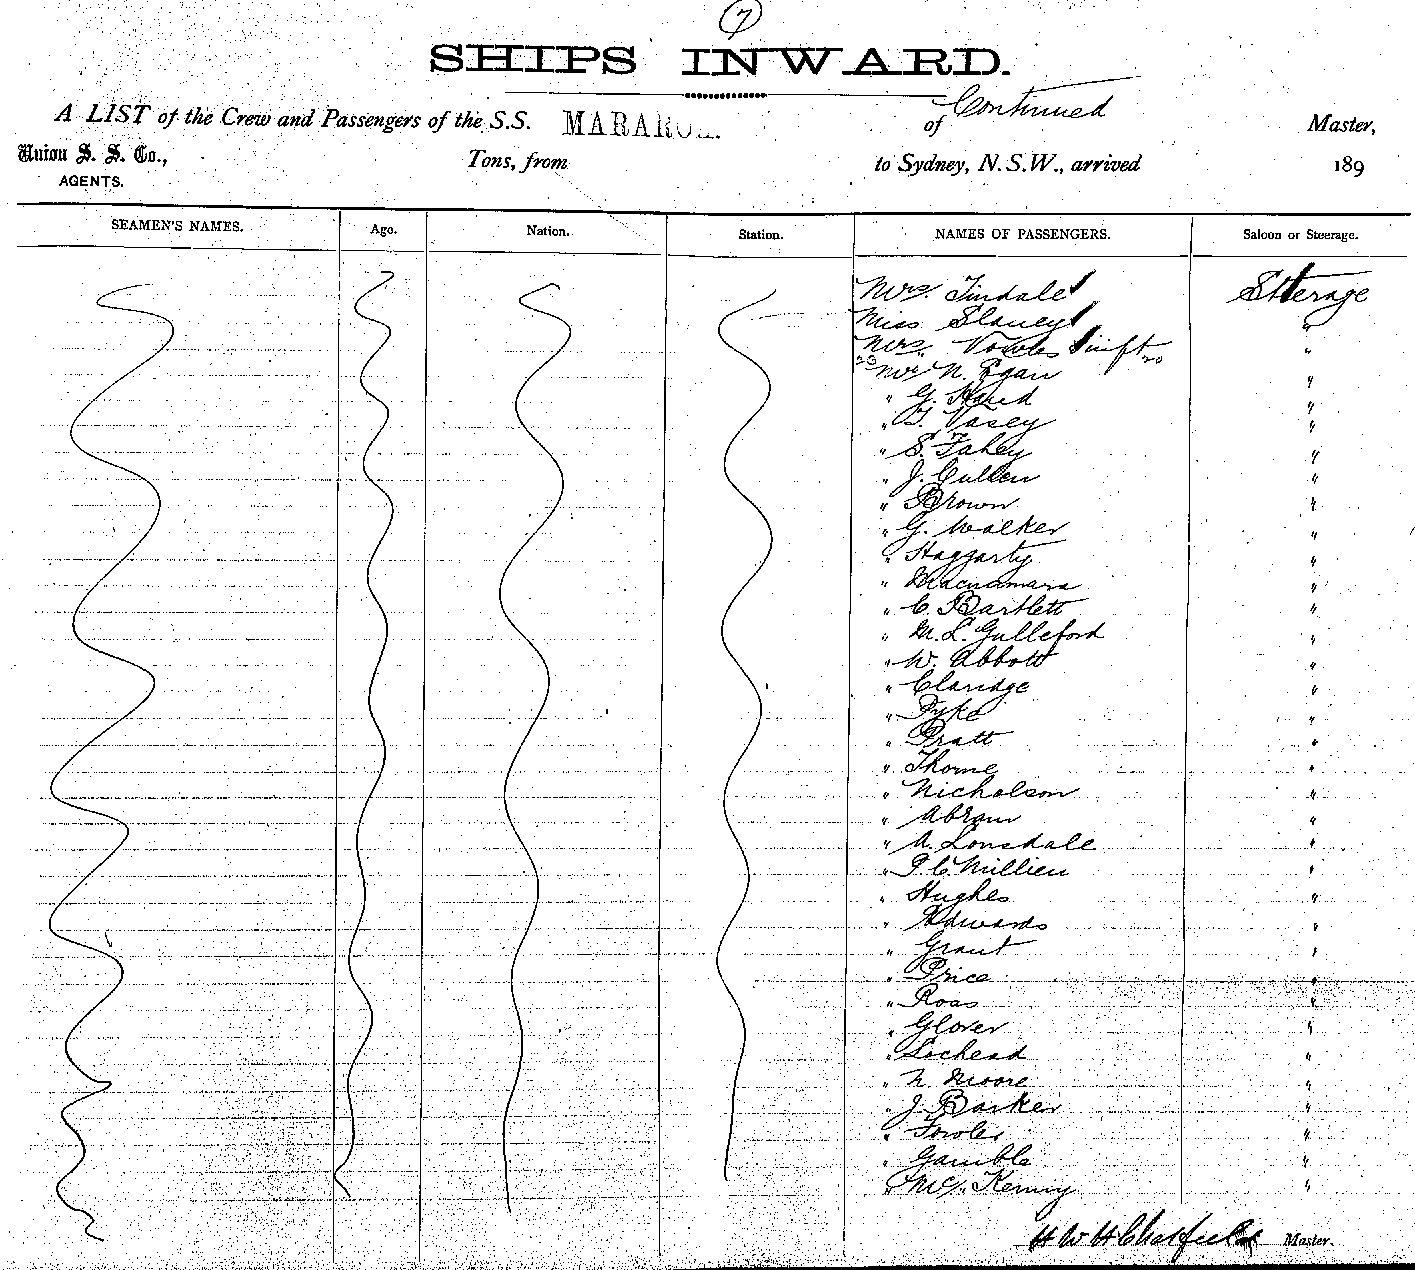 7
SHIPS INWARD.
A LIST of the Crew and Passengers of the S.S. MARAROA. of Continued Master,
Union S. S. Co., Tons, from to Sydney, N.S.W., arrived 189
AGENTS.
SEAMEN'S NAMES. Age. Nation. Station. NAMES OF PASSENGERS. Saloon or Steerage.
Mrs. Tindale Steerage
Miss Slaney "
Mrs. Vowles Swift "
Mr N. Egan "
" G. Hurd "
" T. Vasey "
" S. Fahey "
" J. Cullen "
" Brown "
" G. Walker "
" Haggarty "
" Macnamara "
" C. Bartlett "
" M. L. Gulleford "
" W. Abbott "
" Claridge "
" Pyke "
" Pratt "
" Thorne "
" Nicholson "
" Abram "
" A. Lonsdale "
" P. C. Millien "
" Hughes "
" Edwards "
" Grant "
" Price "
" Ross "
" Glover "
" Lochead "
" Moore "
" J. Barker "
" Fowler "
" Gamble "
" Mc Kenny "
H W H Chatfield Master.